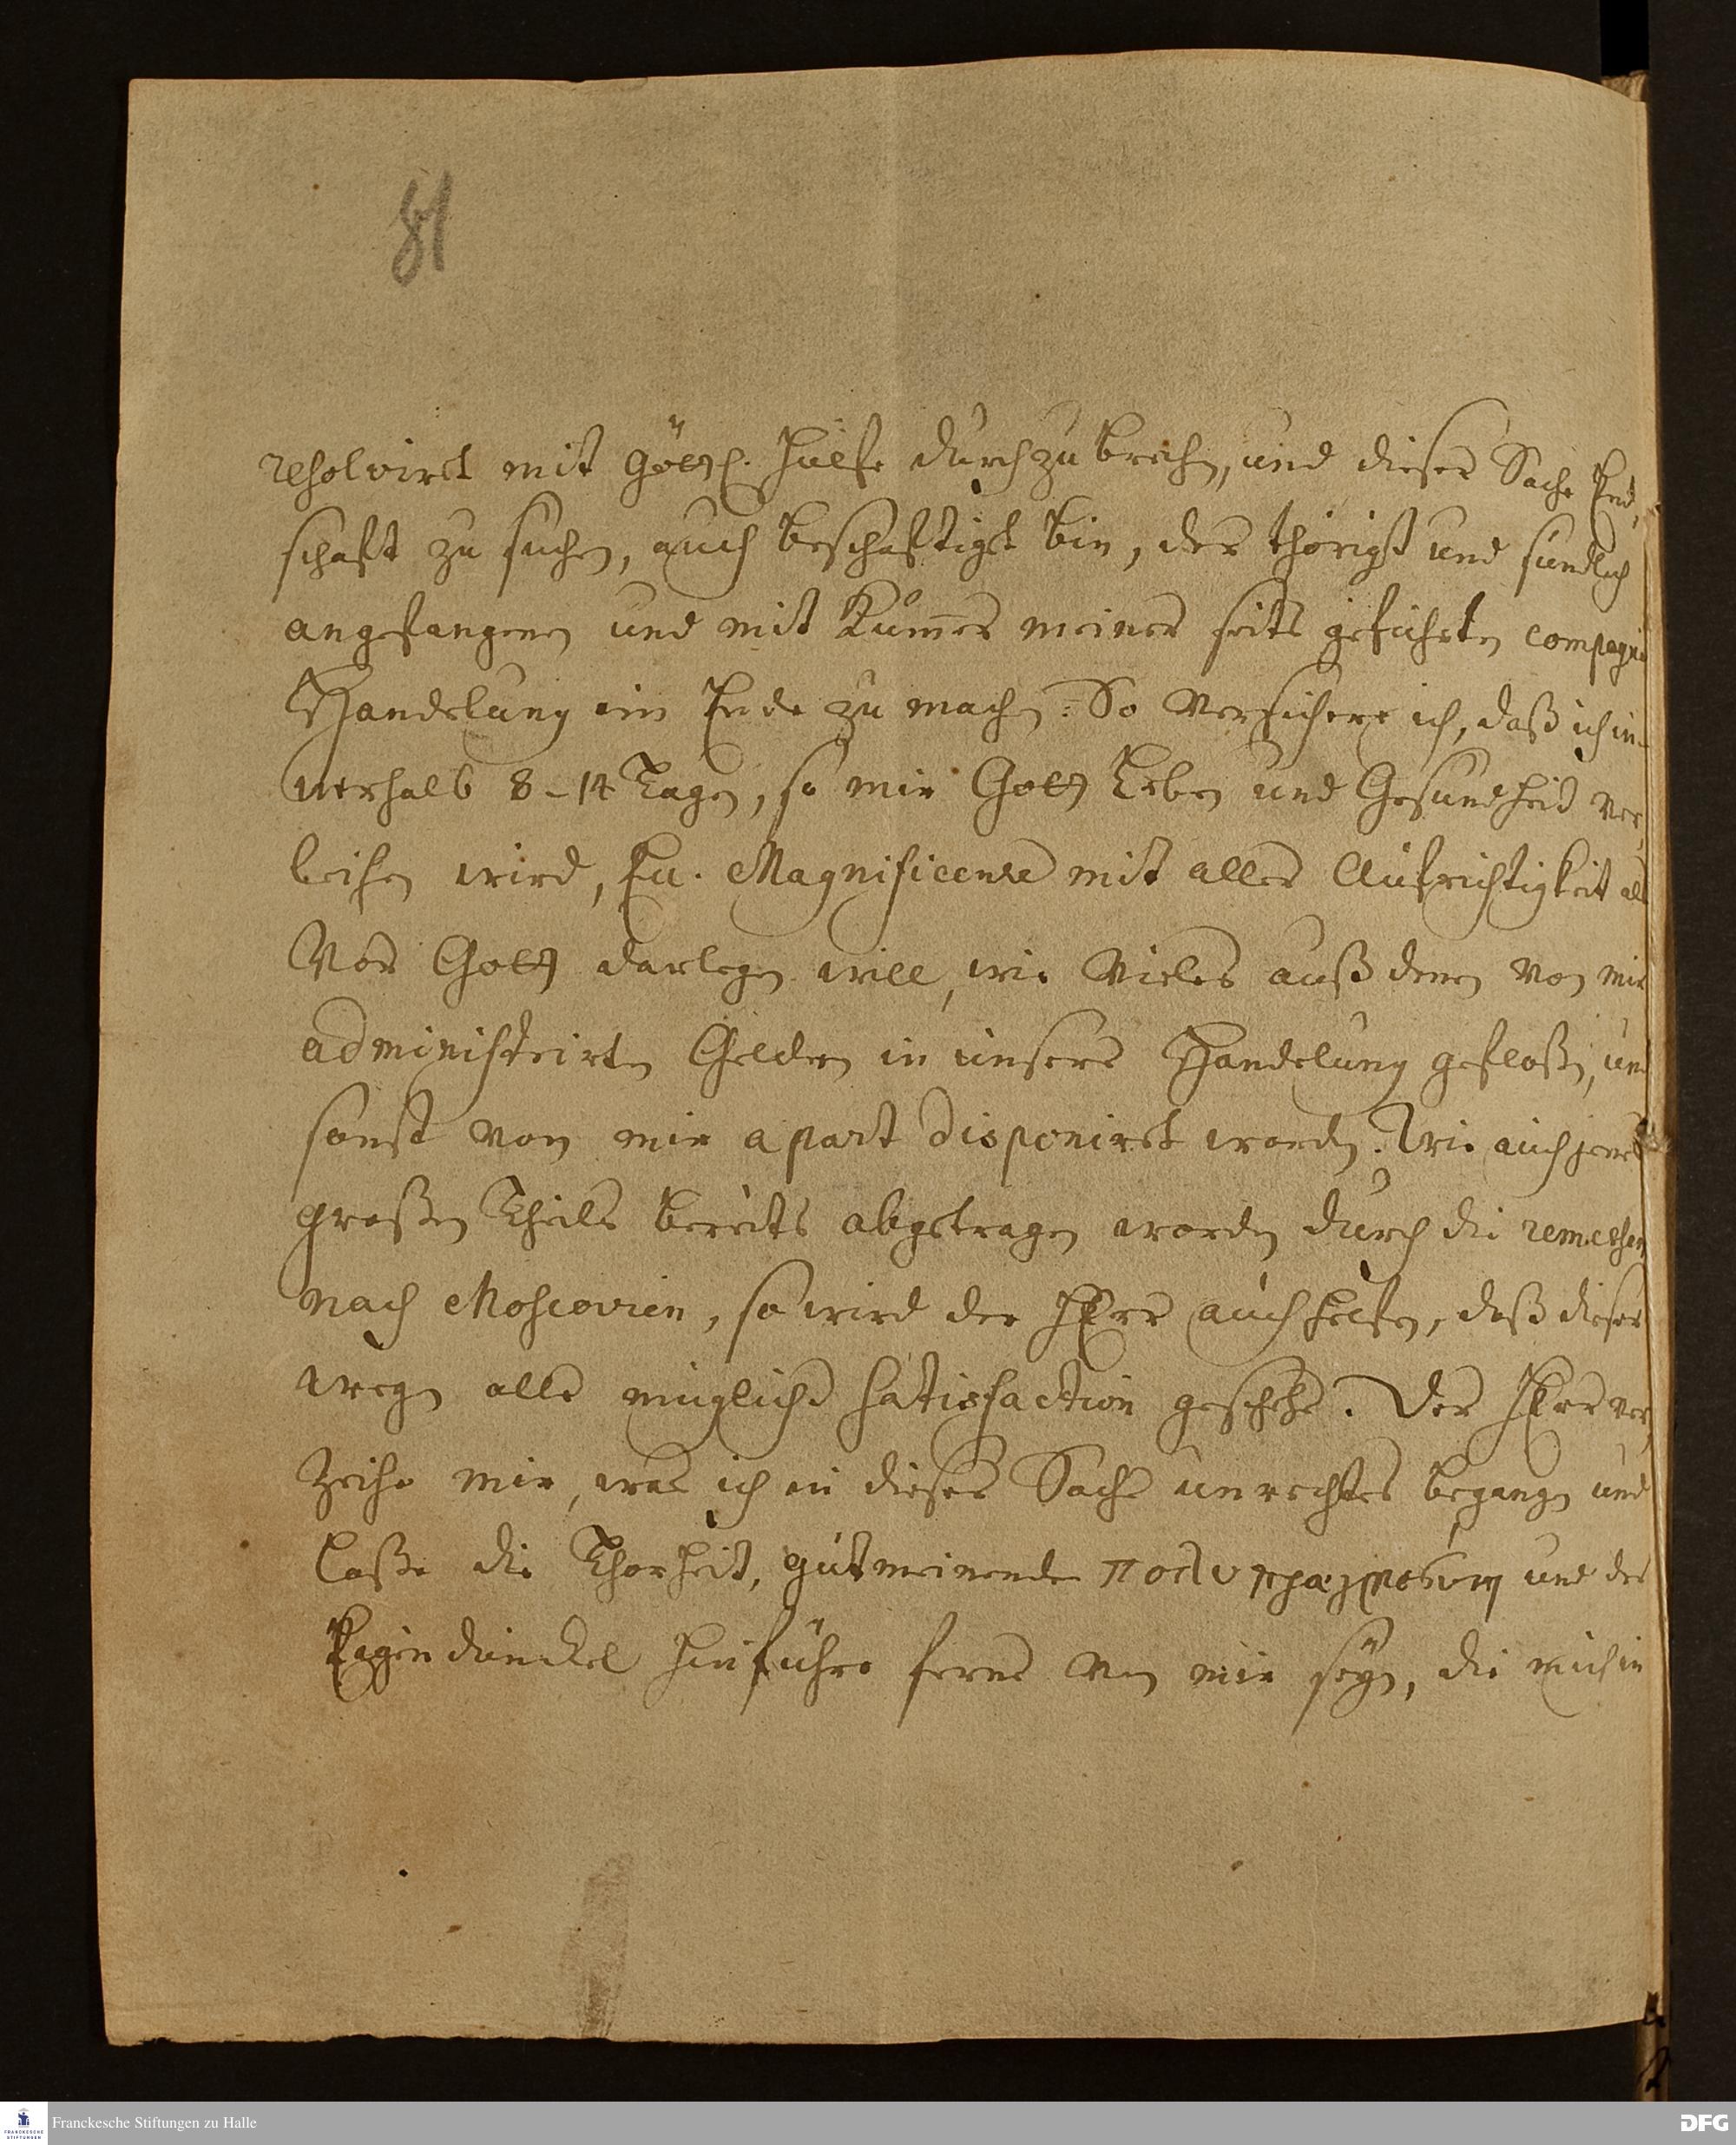 81
resolviret mit göttl. Hülfe durchzubrechen, und dieser Sache End,
schaft zu suchen, auch beschäftiget bin, der thörigst und sündlich
angefangenen und mit Kum̅er meiner seits geführten compagnie
Handelung ein Ende zu machen: So versichere ich, daß ich in-
nerhalb 8-14 Tagen, so mir Gott Leben und Gesundheit ver,
leihen wird, Eu. Magnificence mit aller Aufrichtigkeit als
Vor Gott darlegen will, wie Vieles auß denen von mir
administrirten Geldern in unsere Handelung gefloßen, und
sonst von mir apart disponiret worden. Wie auch jenes
großen Theils bereits abgetragen worden durch die remessen
nach Moscovien, so wird der HErr auch helfen, daß dieser
wegen alle mügliche satisfaction geschehe. Der HErr ver,
zeihe mir, was ich in dieser Sache unrechtes begangen und
laße die Thorheit, gutmeinende und der
Eigendünckel hinführo ferne von mir seyn, die mich in
Franckesche Stiftungen zu Halle
FRANCKESCHE STIFTUNGEN
DFG